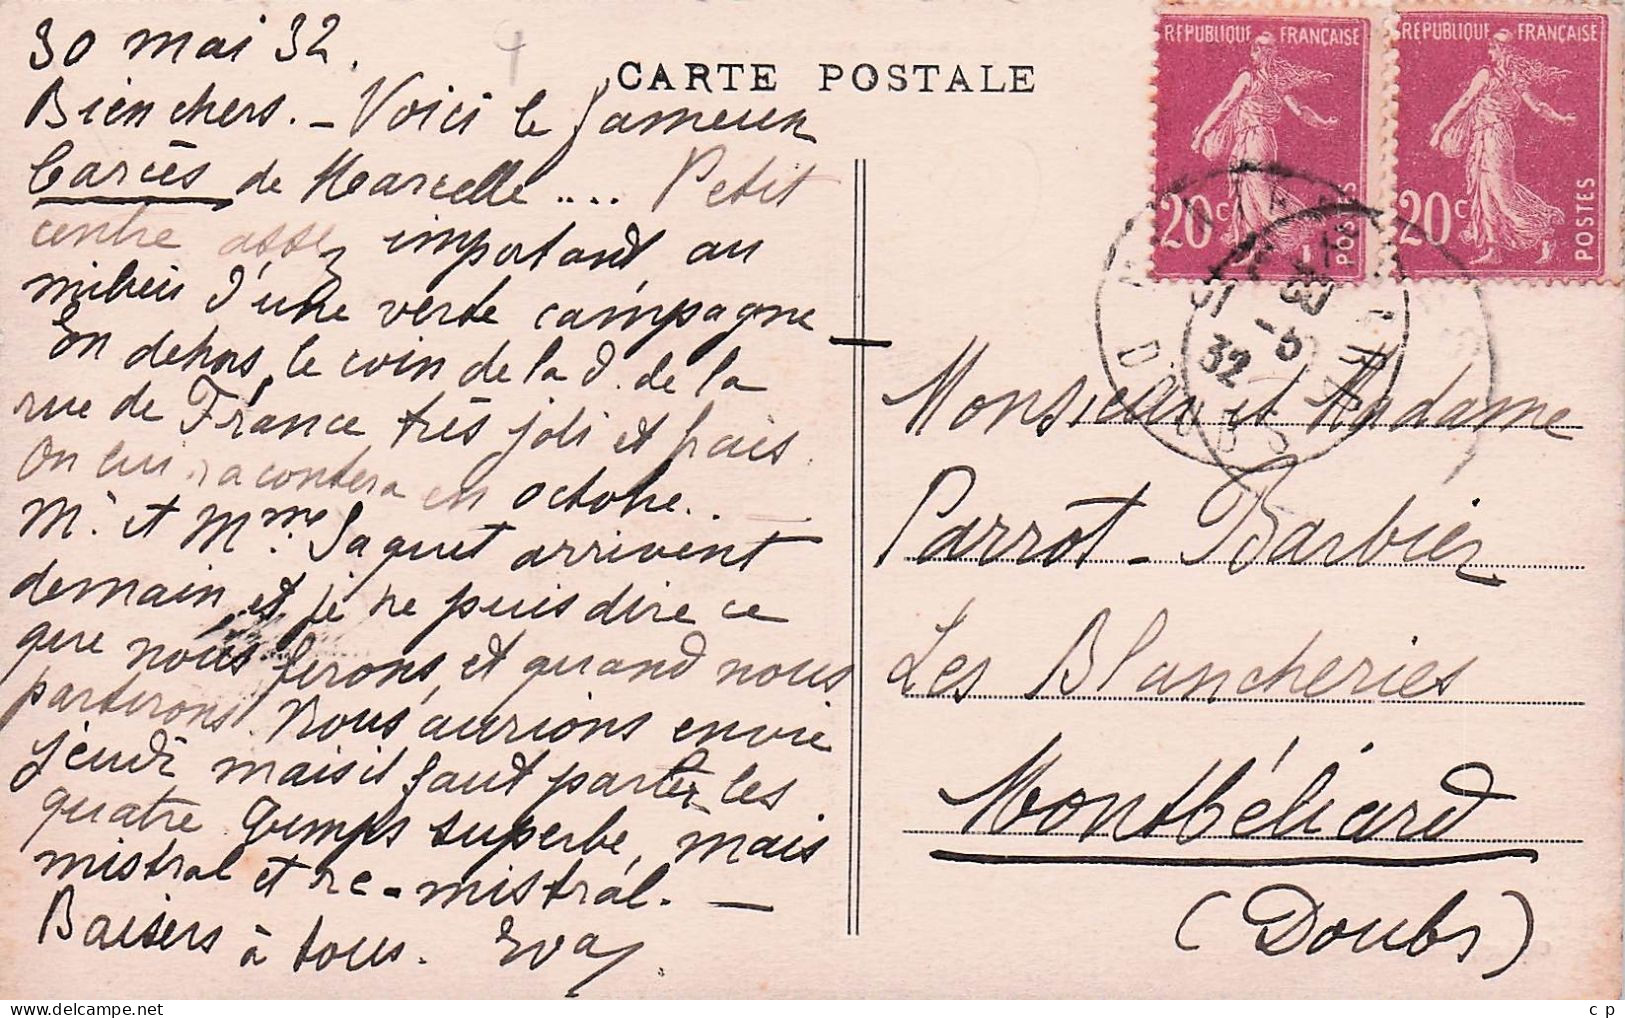 30 mai 32.
CARTE POSTALE
Bien chers. - Voici le fameux
Carcès de Marcelle .... Petit
centre assez important au
milieu d'une verte campagne
En dehors, le coin de la d. de la
rue de France, très joli et frais.
On lui racontera en octobre..
Mr. et Mme. Jaquet arrivent
demain, et je ne puis dire ce
que nous ferons, et quand nous
partirons. Nous aurions envie
jeudi mais il faut partir les
quatre. Temps superbe, mais
mistral et re-mistral. -
Baisers à tous. Eva
REPUBLIQUE FRANÇAISE
20c
POSTES
REPUBLIQUE FRANÇAISE
20c
POSTES
31 -5
32
DOUBS
Monsieur et Madame
Parrot-Barbier
Les Blancheries
Montbéliard
(Doubs)
c p